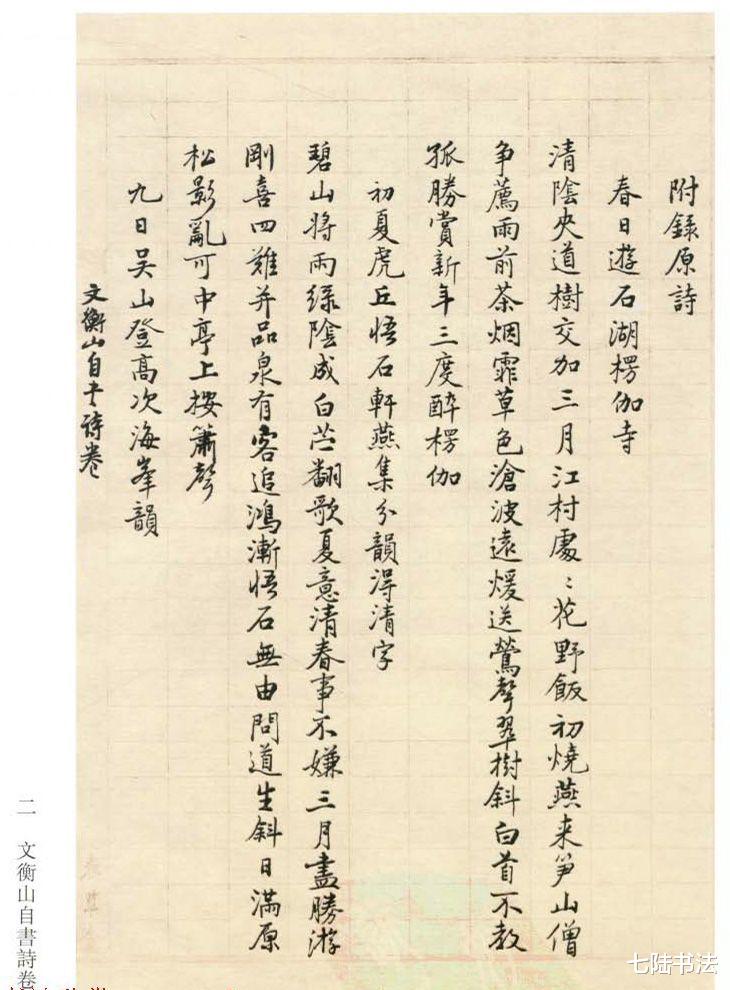 附錄原詩
春日遊石湖楞伽寺
清陰夾道樹交加三月江村處〻花野飯初燒燕来筍山僧
争薦雨前茶烟霏草色滄波遠煖送鶯聲翠樹斜白首不教
孤勝賞新年三度醉楞伽
初夏虎丘悟石軒燕集分韻得清字
碧山將雨綠陰成白苎翻歌夏意清春事不嫌三月盡勝游
剛喜四難并品泉有客追鴻漸悟石無由問道生斜日滿原
松影亂可中亭上按簫聲
九日吴山登高次海峯韻
文衡山自书詩卷
二 文衡山自書詩卷
七陆书法